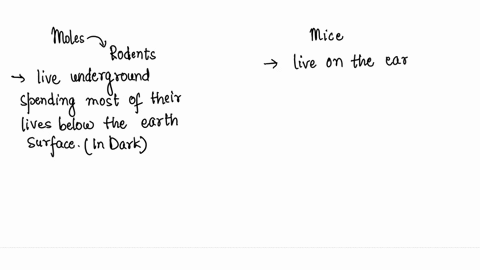 Moles → Rodents
→ live underground
spending most of their
lives below the earth
surface. (In Dark)
Mice
→ live on the ear